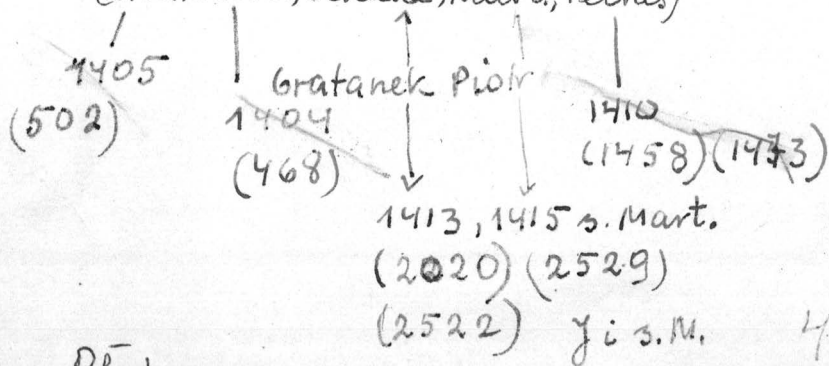 1405
Gratanek Piotr
(502) 1404 1410
(468) (1458) (1473)
1413, 1415 s. Mart.
(2020) (2529)
(2522) J i s. M.